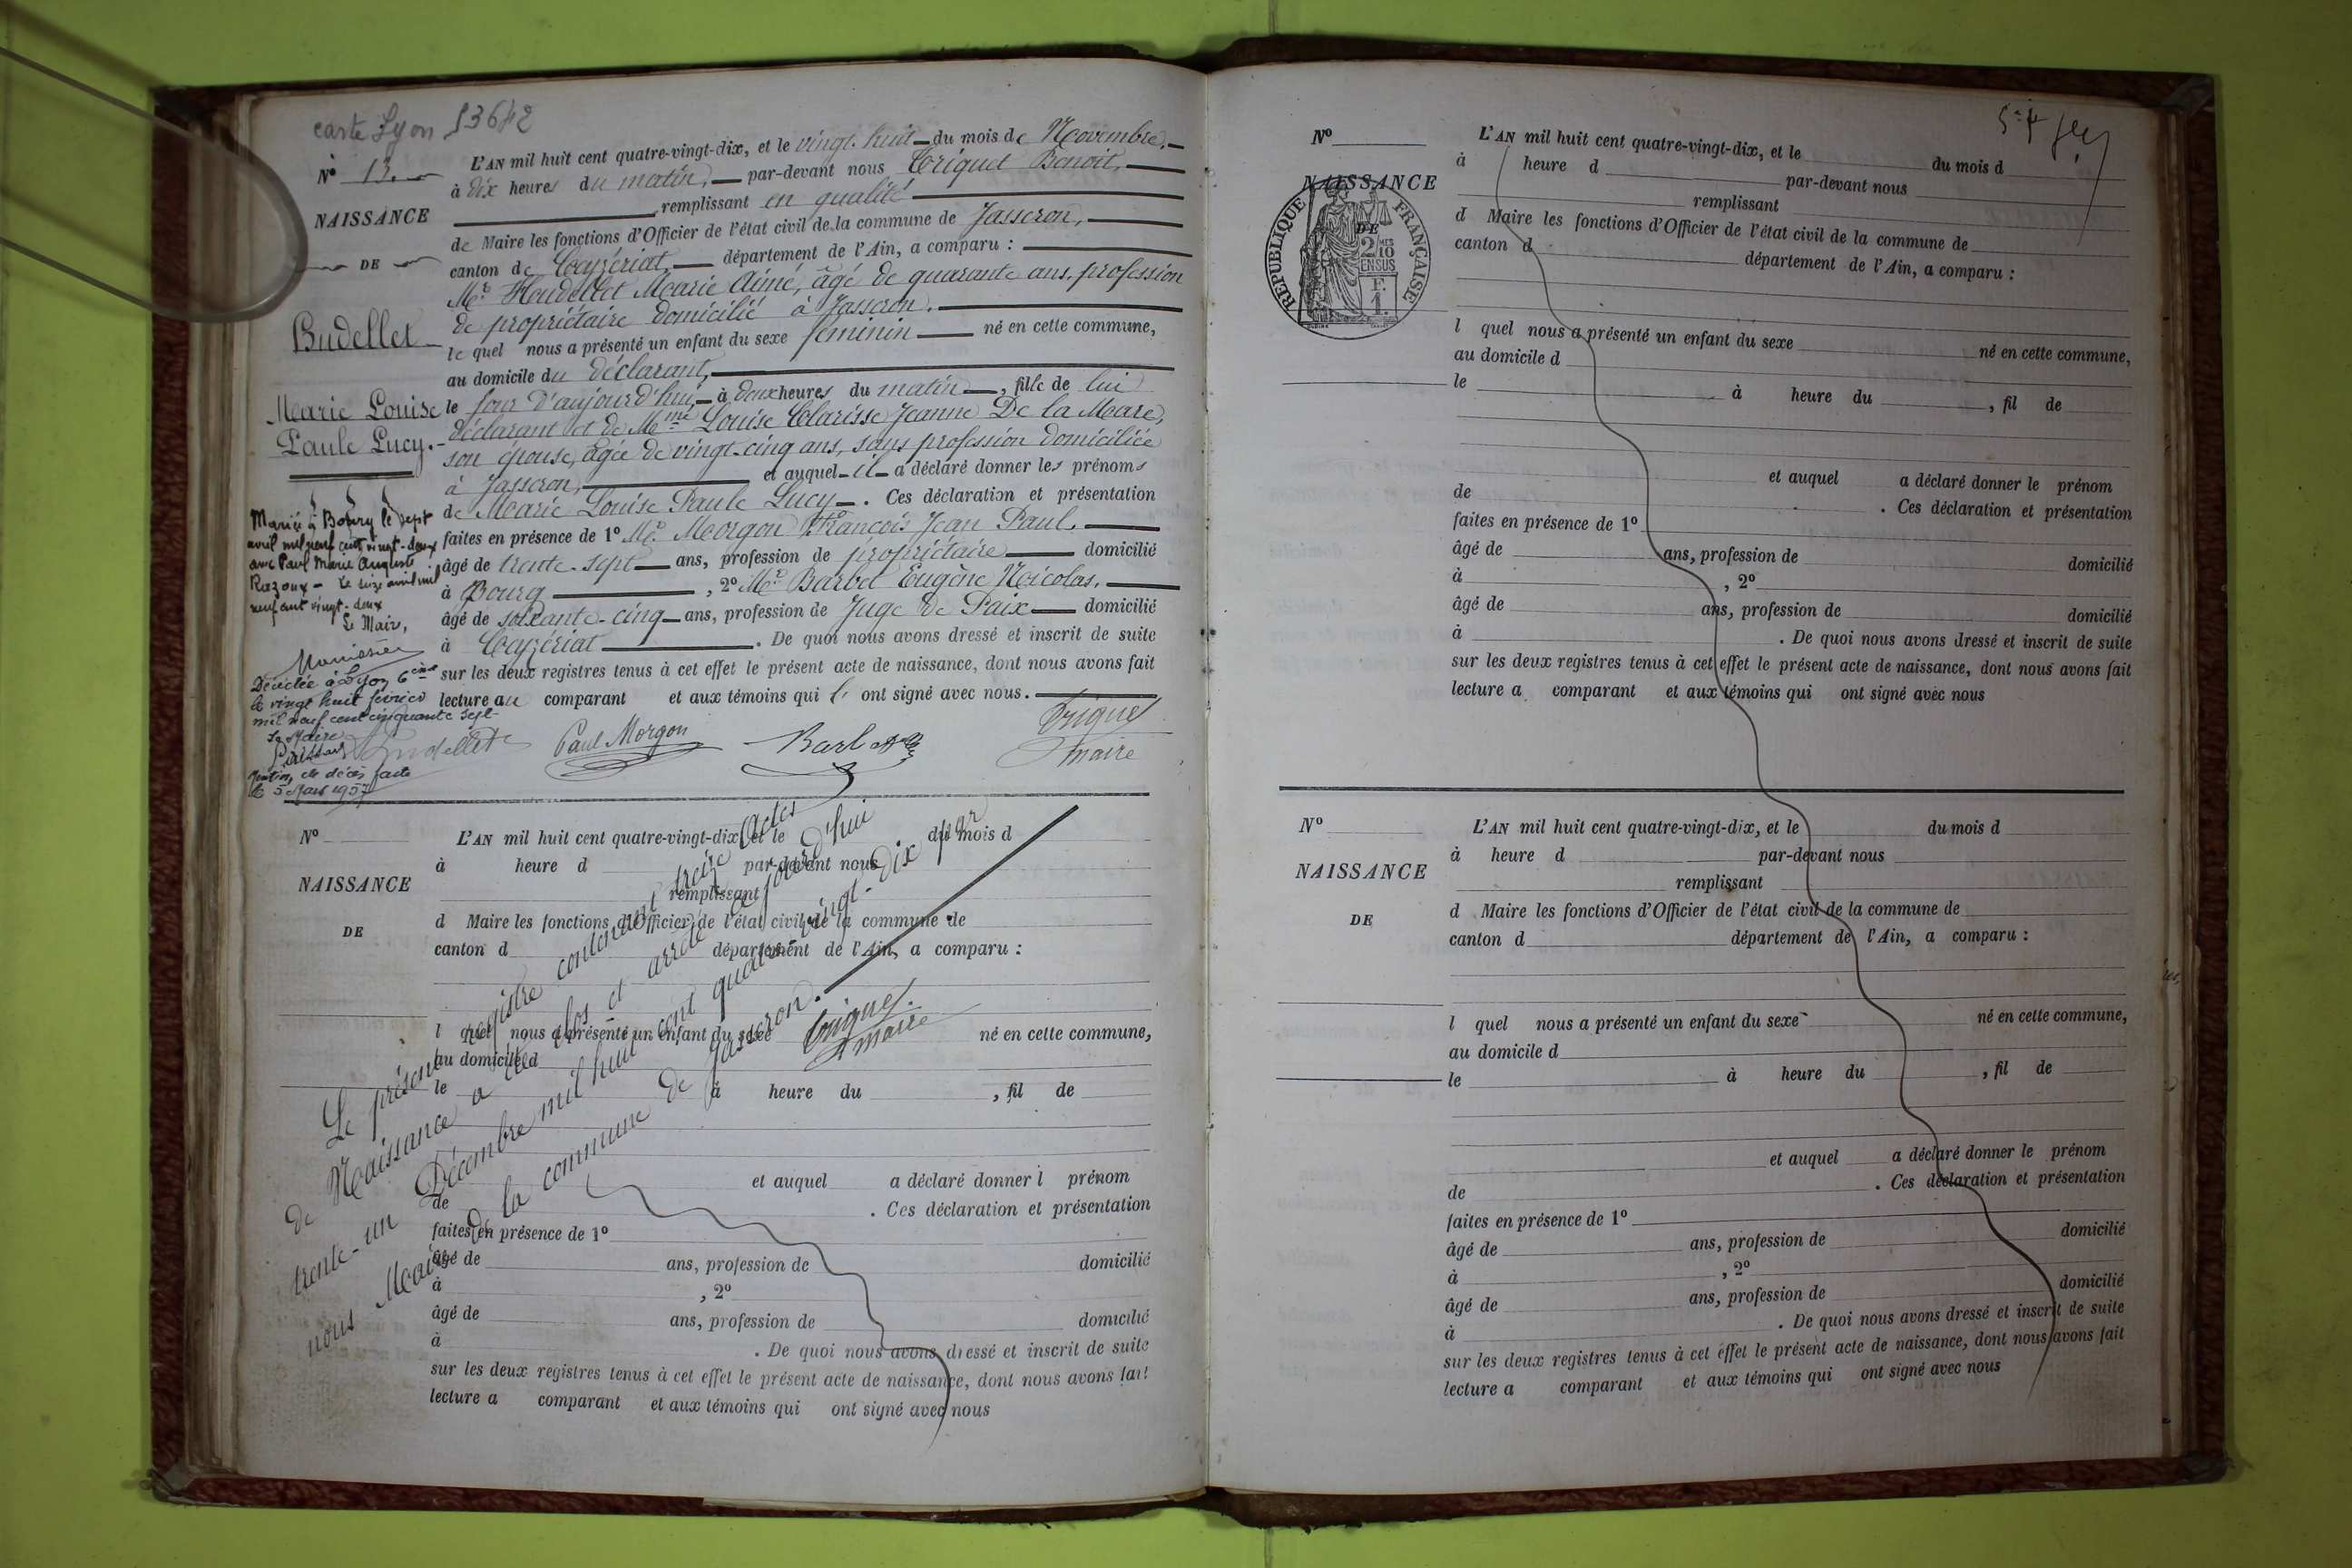 carte Lyon 53642
N° 13.
NAISSANCE
DE
Budellet
Marie Louise
Paule Lucy.
L'AN mil huit cent quatre-vingt-dix, et le vingt-huit du mois de Novembre,
à dix heures du matin, par-devant nous Triquet Benoit,
remplissant en qualité
de Maire les fonctions d'Officier de l'état civil de la commune de Jasseron,
canton de Ceyzériat, département de l'Ain, a comparu :
Mr. Marie Aimé, âgé de quarante ans, profession
de propriétaire domicilié à Jasseron.
le quel nous a présenté un enfant du sexe féminin né en cette commune,
au domicile du déclarant,
le jour d'aujourd'hui à deux heures du matin, fille de lui
déclarant et de Mme Louise Clarisse Jeanne De la Mare,
son épouse, âgée de vingt-cinq ans, sans profession domiciliée
à Jasseron, et auquel il a déclaré donner les prénoms
de Marie Louise Paule Lucy. Ces déclaration et présentation
faites en présence de 1° Mr. Morgon François Jean Paul,
âgé de trente-sept ans, profession de propriétaire domicilié
à Bourg, 2° Mr. Barbet Eugène Nicolas,
âgé de soixante-cinq ans, profession de Juge de Paix domicilié
à Ceyzériat. De quoi nous avons dressé et inscrit de suite
sur les deux registres tenus à cet effet le présent acte de naissance, dont nous avons fait
lecture au comparant et aux témoins qui l' ont signé avec nous.
Budellet Paul Morgon Barbet Triquet
maire
Mariée à Bourg le sept
avril mil neuf cent vingt-deux
avec Paul Marie Auguste
Razoux - Le treize avril mil
neuf cent vingt-deux
Le Maire,
Décédée à Lyon 6ème
le vingt huit février
mil neuf cent cinquante sept
Le Maire
Mention de décès faite
le 5 Mars 1957
N°
NAISSANCE
DE
L'AN mil huit cent quatre-vingt-dix, et le du mois d
à heure d par-devant nous
remplissant
d Maire les fonctions d'Officier de l'état civil de la commune de
canton d département de l'Ain, a comparu :
l quel nous a présenté un enfant du sexe né en cette commune,
au domicile d
le à heure du , fil de
et auquel a déclaré donner l prénom
de . Ces déclaration et présentation
faites en présence de 1°
âgé de ans, profession de domicilié
à , 2°
âgé de ans, profession de domicilié
à . De quoi nous avons dressé et inscrit de suite
sur les deux registres tenus à cet effet le présent acte de naissance, dont nous avons fait
lecture a comparant et aux témoins qui ont signé avec nous
Le présent registre contenant treize actes
de Naissance a été clos et arrêté ce jour d'hui
trente-un Décembre mil huit cent quatre-vingt-dix par
nous Maire de la commune de Jasseron.
Triquet
maire
N°
NAISSANCE
DE
RÉPUBLIQUE FRANÇAISE
2/10
EN SUS
F.
1.
L'AN mil huit cent quatre-vingt-dix, et le du mois d
à heure d par-devant nous
remplissant
d Maire les fonctions d'Officier de l'état civil de la commune de
canton d département de l'Ain, a comparu :
l quel nous a présenté un enfant du sexe né en cette commune,
au domicile d
le à heure du , fil de
et auquel a déclaré donner le prénom
de . Ces déclaration et présentation
faites en présence de 1°
âgé de ans, profession de domicilié
à , 2°
âgé de ans, profession de domicilié
à . De quoi nous avons dressé et inscrit de suite
sur les deux registres tenus à cet effet le présent acte de naissance, dont nous avons fait
lecture a comparant et aux témoins qui ont signé avec nous
N°
NAISSANCE
DE
L'AN mil huit cent quatre-vingt-dix, et le du mois d
à heure d par-devant nous
remplissant
d Maire les fonctions d'Officier de l'état civil de la commune de
canton d département de l'Ain, a comparu :
l quel nous a présenté un enfant du sexe né en cette commune,
au domicile d
le à heure du , fil de
et auquel a déclaré donner le prénom
de . Ces déclaration et présentation
faites en présence de 1°
âgé de ans, profession de domicilié
à , 2°
âgé de ans, profession de domicilié
à . De quoi nous avons dressé et inscrit de suite
sur les deux registres tenus à cet effet le présent acte de naissance, dont nous avons fait
lecture a comparant et aux témoins qui ont signé avec nous